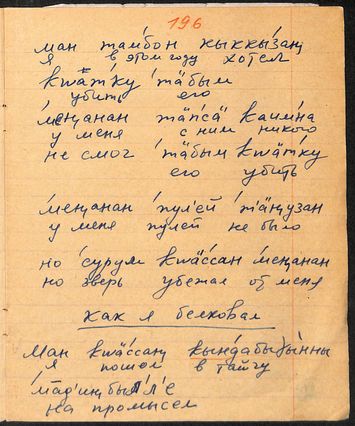 196
ман тамбон кыккы́заң
я в этом году хотел
кwӓтку тӓбым
убить его
меңанан тӓпсӓ каим́на
у меня с ним никого
не смог тӓбым кwӓтку
его убить
меңанан пулей тӓңузан
у меня пулей не было
но сурум кwӓссан меңанан
но зверь убежал от меня
как я белковал
Ман кwӓссаң
я пошол в тайгу
на промысел